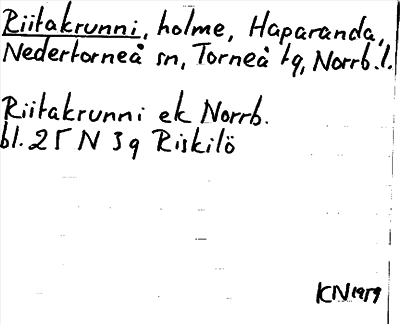 Riitakrunni, holme, Haparanda,
Nedertorneå sn, Torneå tg, Norrb. l.
Riitakrunni ek Norrb.
bl. 25 N 3 g Riskilö
KN 1959